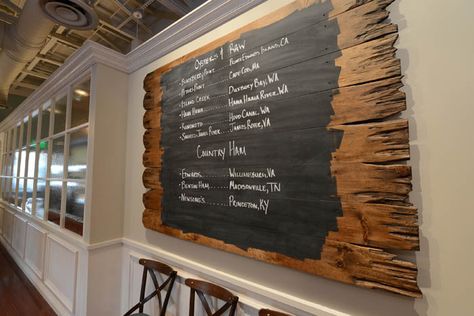 Oysters & Raw
Blueberry Point Prince Edwards Island, CA
Wiley's Point Cape Cod, MA
Island Creek Duxbury Bay, WA
Hama Hama Hama Hama River, WA
Kumomoto Hood Canal, WA
Shucked James River James River, VA
Country Ham
Edwards Williamsburg, VA
Benton Ham Madsonville, TN
Newsome's Princeton, KY